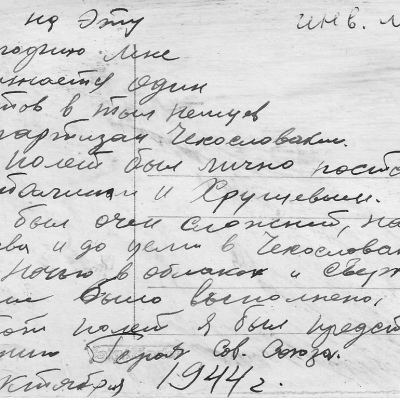 на эту инв.
годню мне
один
в тыл немцев
партизан Чехословакии.
полет был лично
и Хрущевым.
был очен сложный, на
и до цели в Чехословак
ночью в облаках и сверх
было выполнено,
полет я был предст
Героя Сов. Союза.
ктября 1944 г.